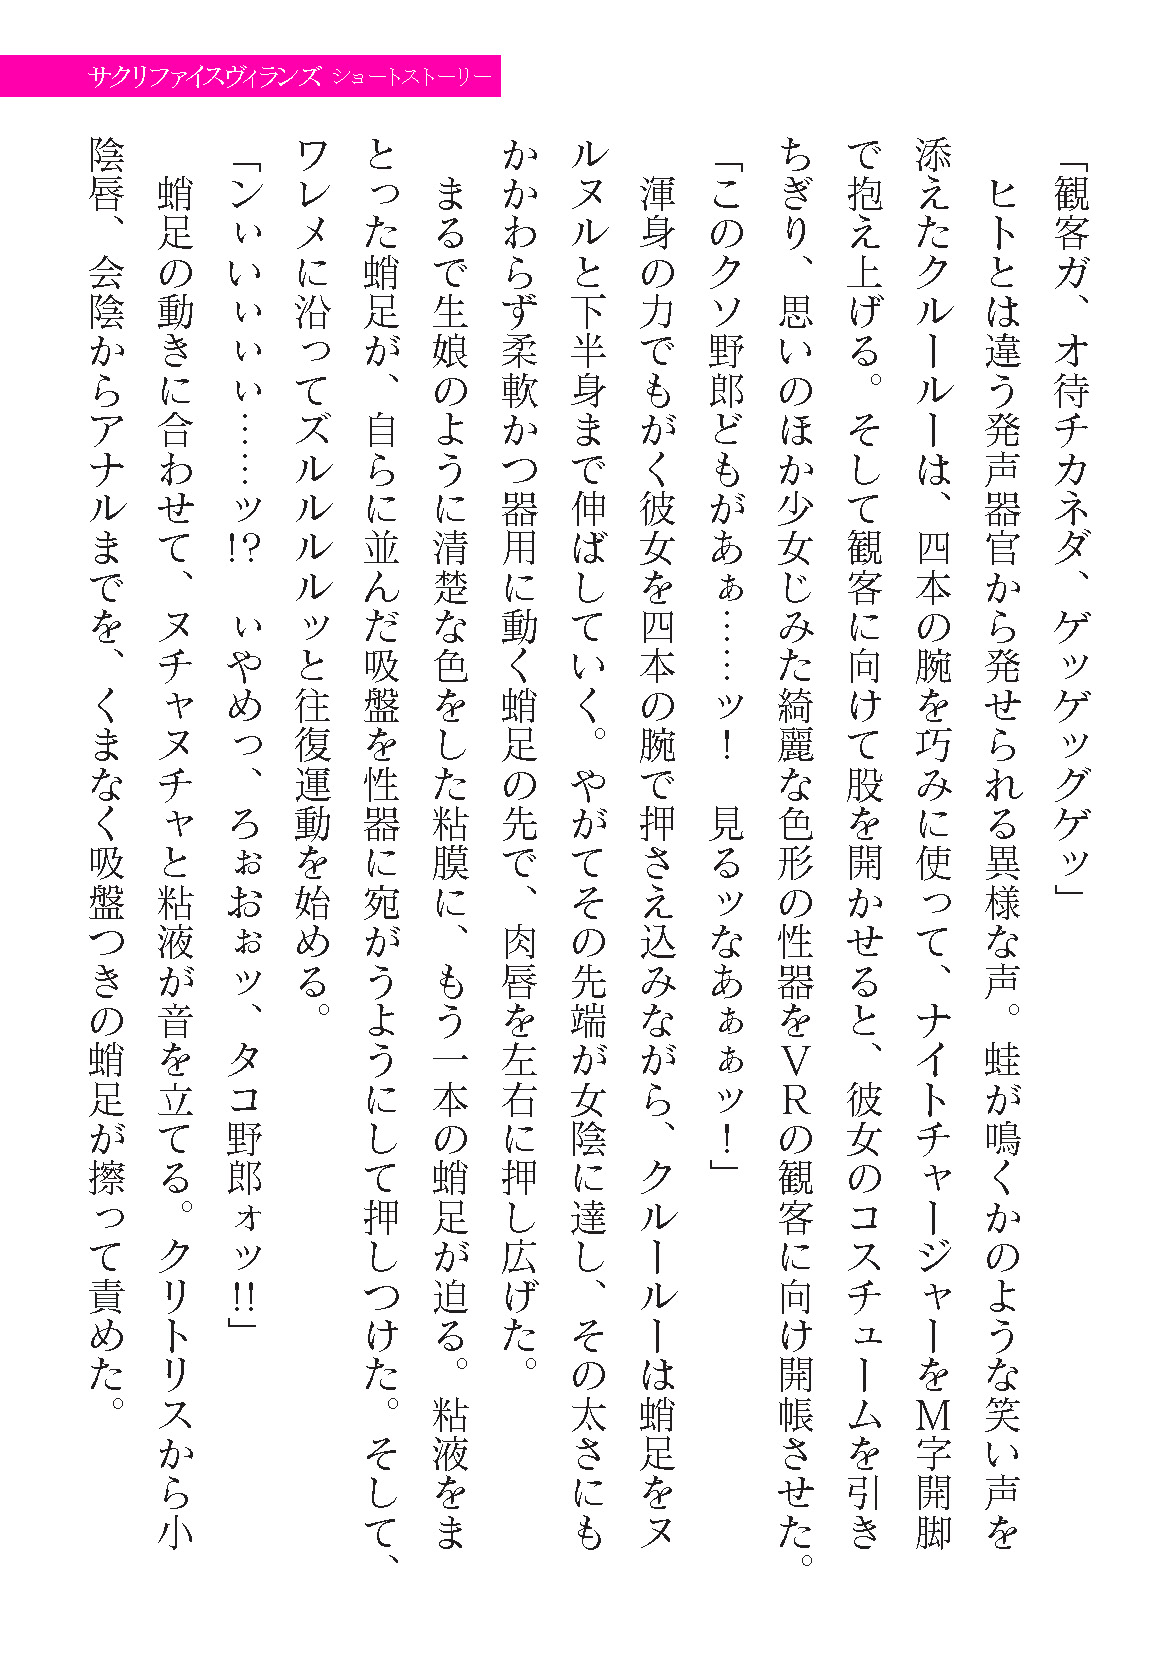 サクリファイスヴィランズ ショートストーリー
「観客ガ、オ待チカネダ、ゲッゲッグゲッ」
　ヒトとは違う発声器官から発せられる異様な声。蛙が鳴くかのような笑い声を
添えたクルールーは、四本の腕を巧みに使って、ナイトチャージャーをＭ字開脚
で抱え上げる。そして観客に向けて股を開かせると、彼女のコスチュームを引き
ちぎり、思いのほか少女じみた綺麗な色形の性器をＶＲの観客に向け開帳させた。
「このクソ野郎どもがあぁ……ッ！　見るッなあぁぁッ！」
　渾身の力でもがく彼女を四本の腕で押さえ込みながら、クルールーは蛸足をヌ
ルヌルと下半身まで伸ばしていく。やがてその先端が女陰に達し、その太さにも
かかわらず柔軟かつ器用に動く蛸足の先で、肉唇を左右に押し広げた。
　まるで生娘のように清楚な色をした粘膜に、もう一本の蛸足が迫る。粘液をま
とった蛸足が、自らに並んだ吸盤を性器に宛がうようにして押しつけた。そして、
ワレメに沿ってズルルルルッと往復運動を始める。
「ンぃいぃぃぃ……ッ!?　ぃやめっ、ろぉおぉッ、タコ野郎ォッ!!」
　蛸足の動きに合わせて、ヌチャヌチャと粘液が音を立てる。クリトリスから小
陰唇、会陰からアナルまでを、くまなく吸盤つきの蛸足が擦って責めた。